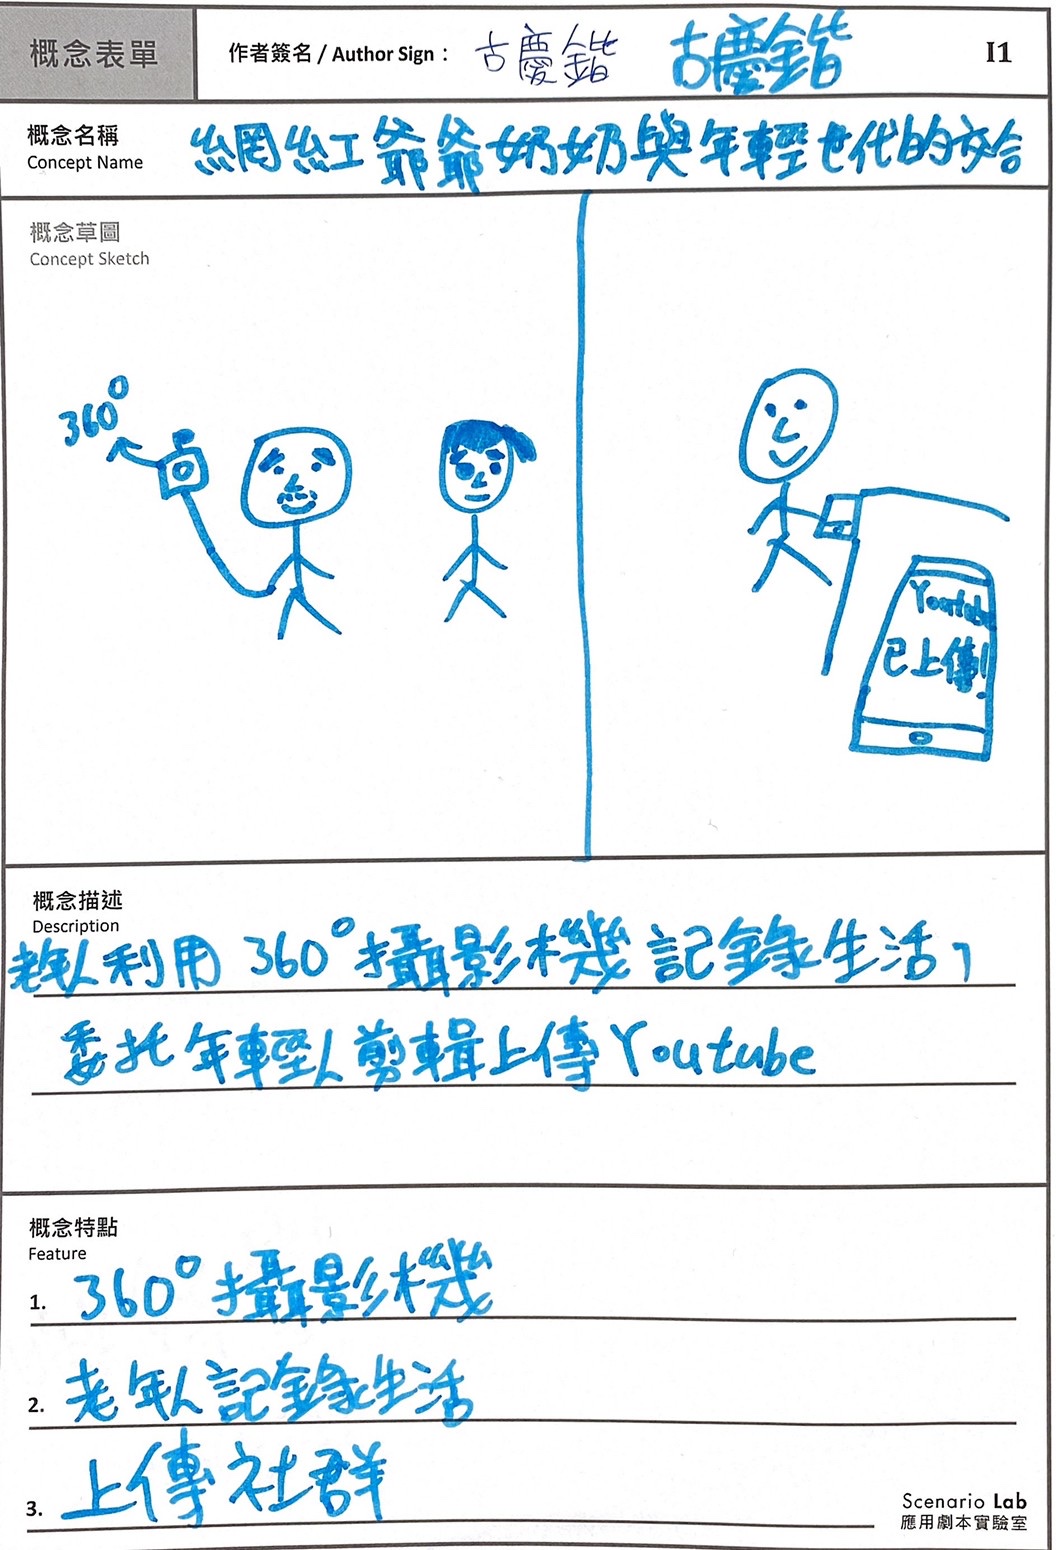 概念表單
作者簽名 / Author Sign： 古慶鍇 古慶鍇
I1
概念名稱
Concept Name
網紅爺爺奶奶與年輕世代的交合
概念草圖
Concept Sketch
360°
Youtube
已上傳!
概念描述
Description
老年人利用 360°攝影機記錄生活，
委托年輕人剪輯上傳Youtube
概念特點
Feature
1. 360°攝影機
2. 老年人記錄生活
3. 上傳社群
Scenario Lab
應用劇本實驗室